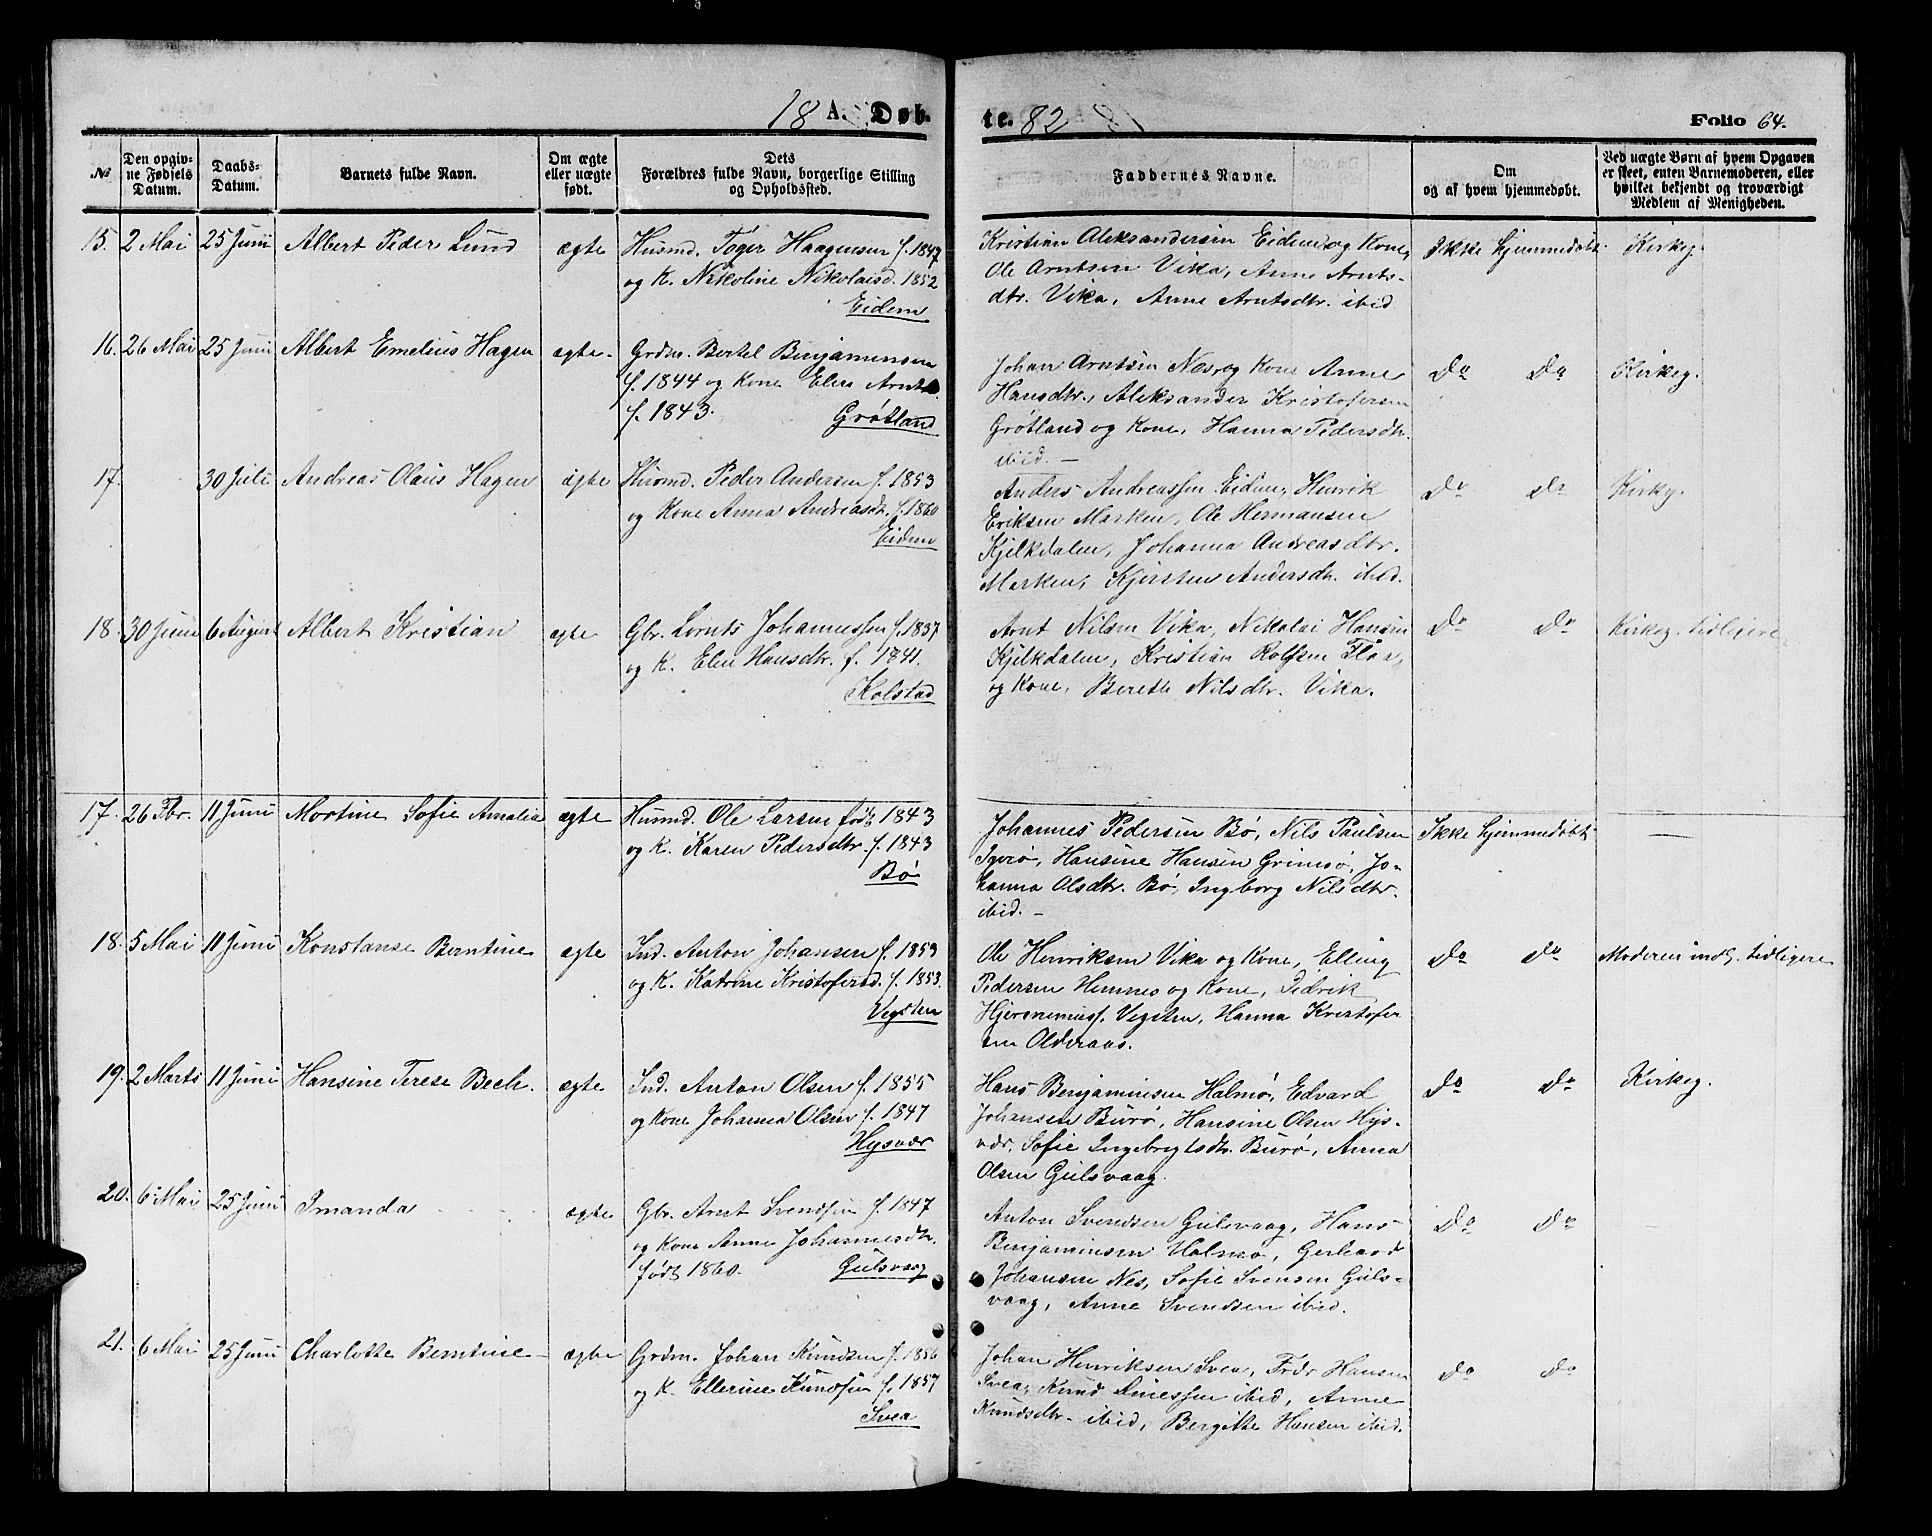 18 A. Døb-
te. 82
Folio 64.
№
Den opgiv-
ne Fødsels
Datum.
Daabs-
Datum.
Barnets fulde Navn.
Om ægte
eller uægte
født.
Dets
Forældres fulde Navn, borgerlige Stilling
og Opholdssted.
Faddernes Navne.
Om
og af hvem hjemmedøbt.
Ved uægte Børn af hvem Opgaven
er skeet, enten Barnemoderen, eller
hvilket bekjendt og troværdigt
Medlem af Menigheden.
15. 2 Mai 25 Juni Albert Peder Lund ægte Husmd. Toger Haagensen f. 1847
og K. Nikoline Nikolaisd. 1852
Eidem
Kristian Aleksandersen Eidem og Kone,
Ole Arntsen Vika, Anne Arnts-
dtr. Vika, Anne Arntsdtr. ibid
Ikke hjemmedøbt Kirkeg.
16. 26 Mai 25 Juni Albert Emelius Hagen ægte. Grdm. Bertel Benjaminsen
f. 1844 og Kone Elen Arnts
f. 1843. Grøtland
Johan Arntsen Nes og Kone Anne
Hansdtr., Aleksander Kristofersen
Grøtland og Kone, Hanna Pedersdtr.
ibid. –
Do Do Kirkeg.
17. 30 Juli Andreas Olaus Hagen ægte Husmd. Peder Andersen f. 1853
og Kone Anna Andreasdt. f. 1860
Eidem
Anders Andreassen Eidem, Henrik
Eriksen Marken, Ole Hermansen
Kjelkdalen, Johanna Andreasdtr.
Marken, Kjersten Andersdtr. ibid.
Do Do Kirkeg.
18. 30 Juni 6 August Albert Kristian ægte Gbr. Lornts Johannessen f. 1837
og K. Elen Hansdtr. f. 1841.
Kolstad
Arnt Nilsen Vika, Nikolai Hansen
Kjelkdalen, Kristian Rolfsen Floa,
og Kone, Bereth Nilsdtr. Vika.
Do Do Kirkeg. tidligere
17. 26 Fbr. 11 Juni Mortine Sofie Amalia ægte Husmd. Ole Larsen født 1843
og K. Karen Pedersdtr. f. 1843
Bø
Johannes Pedersen Bø, Nils Paulsen
Igerø, Hansine Hansen Grimsø, Jo-
hanna Olsdtr. Bø, Ingborg Nilsdtr.
ibid. –
Ikke hjemmedøbt —
18. 5 Mai 11 Juni Konstanse Berntine ægte Ind. Anton Johansen f. 1853
og K. Katrine Kristofersd. f. 1853.
Vegsten
Ole Henriksen Vika og Kone, Elling
Pedersen Hemnes og Kone, Didrik
Hjeronimusf. Vegsten, Hanna Kristofer
sen Olderaas.
Do Do Moderen indg. tidligere
19. 2 Marts 11 Juni Hansine Terese Bech. ægte Ind. Anton Olsen f. 1855
og Kone Johanna Olsen f. 1847
Hysvær
Hans Benjaminsen Halmø, Edvard
Johansen Burø, Hansine Olsen Hys-
vær, Sofie Ingebrigtsdtr. Burø, Anna
Olsen Gulsvaag.
Do Do Kirkeg.
20. 6 Mai 25 Juni Imanda ægte Gbr. Arnt Svendsen f. 1847
og Kone Anne Johannesdtr.
født 1860. Gulsvaag
Anton Svendsen Gulsvaag, Hans
Benjaminsen Halmø, Gerhard
Johansen Nes, Sofie Svensen Guls-
vaag, Anne Svendsen ibid.
Do Do
21. 6 Mai 25 Juni Charlotte Berntine ægte Grdm. Johan Knudsen f. 1856
og K. Ellerine Knudsen f. 1857
Svea
Johan Henriksen Svea, Frdr Hansen
Svea, Knud ibid, Anne
Knudsdtr. ibid, Bergitte Hansen ibid.
Do Do